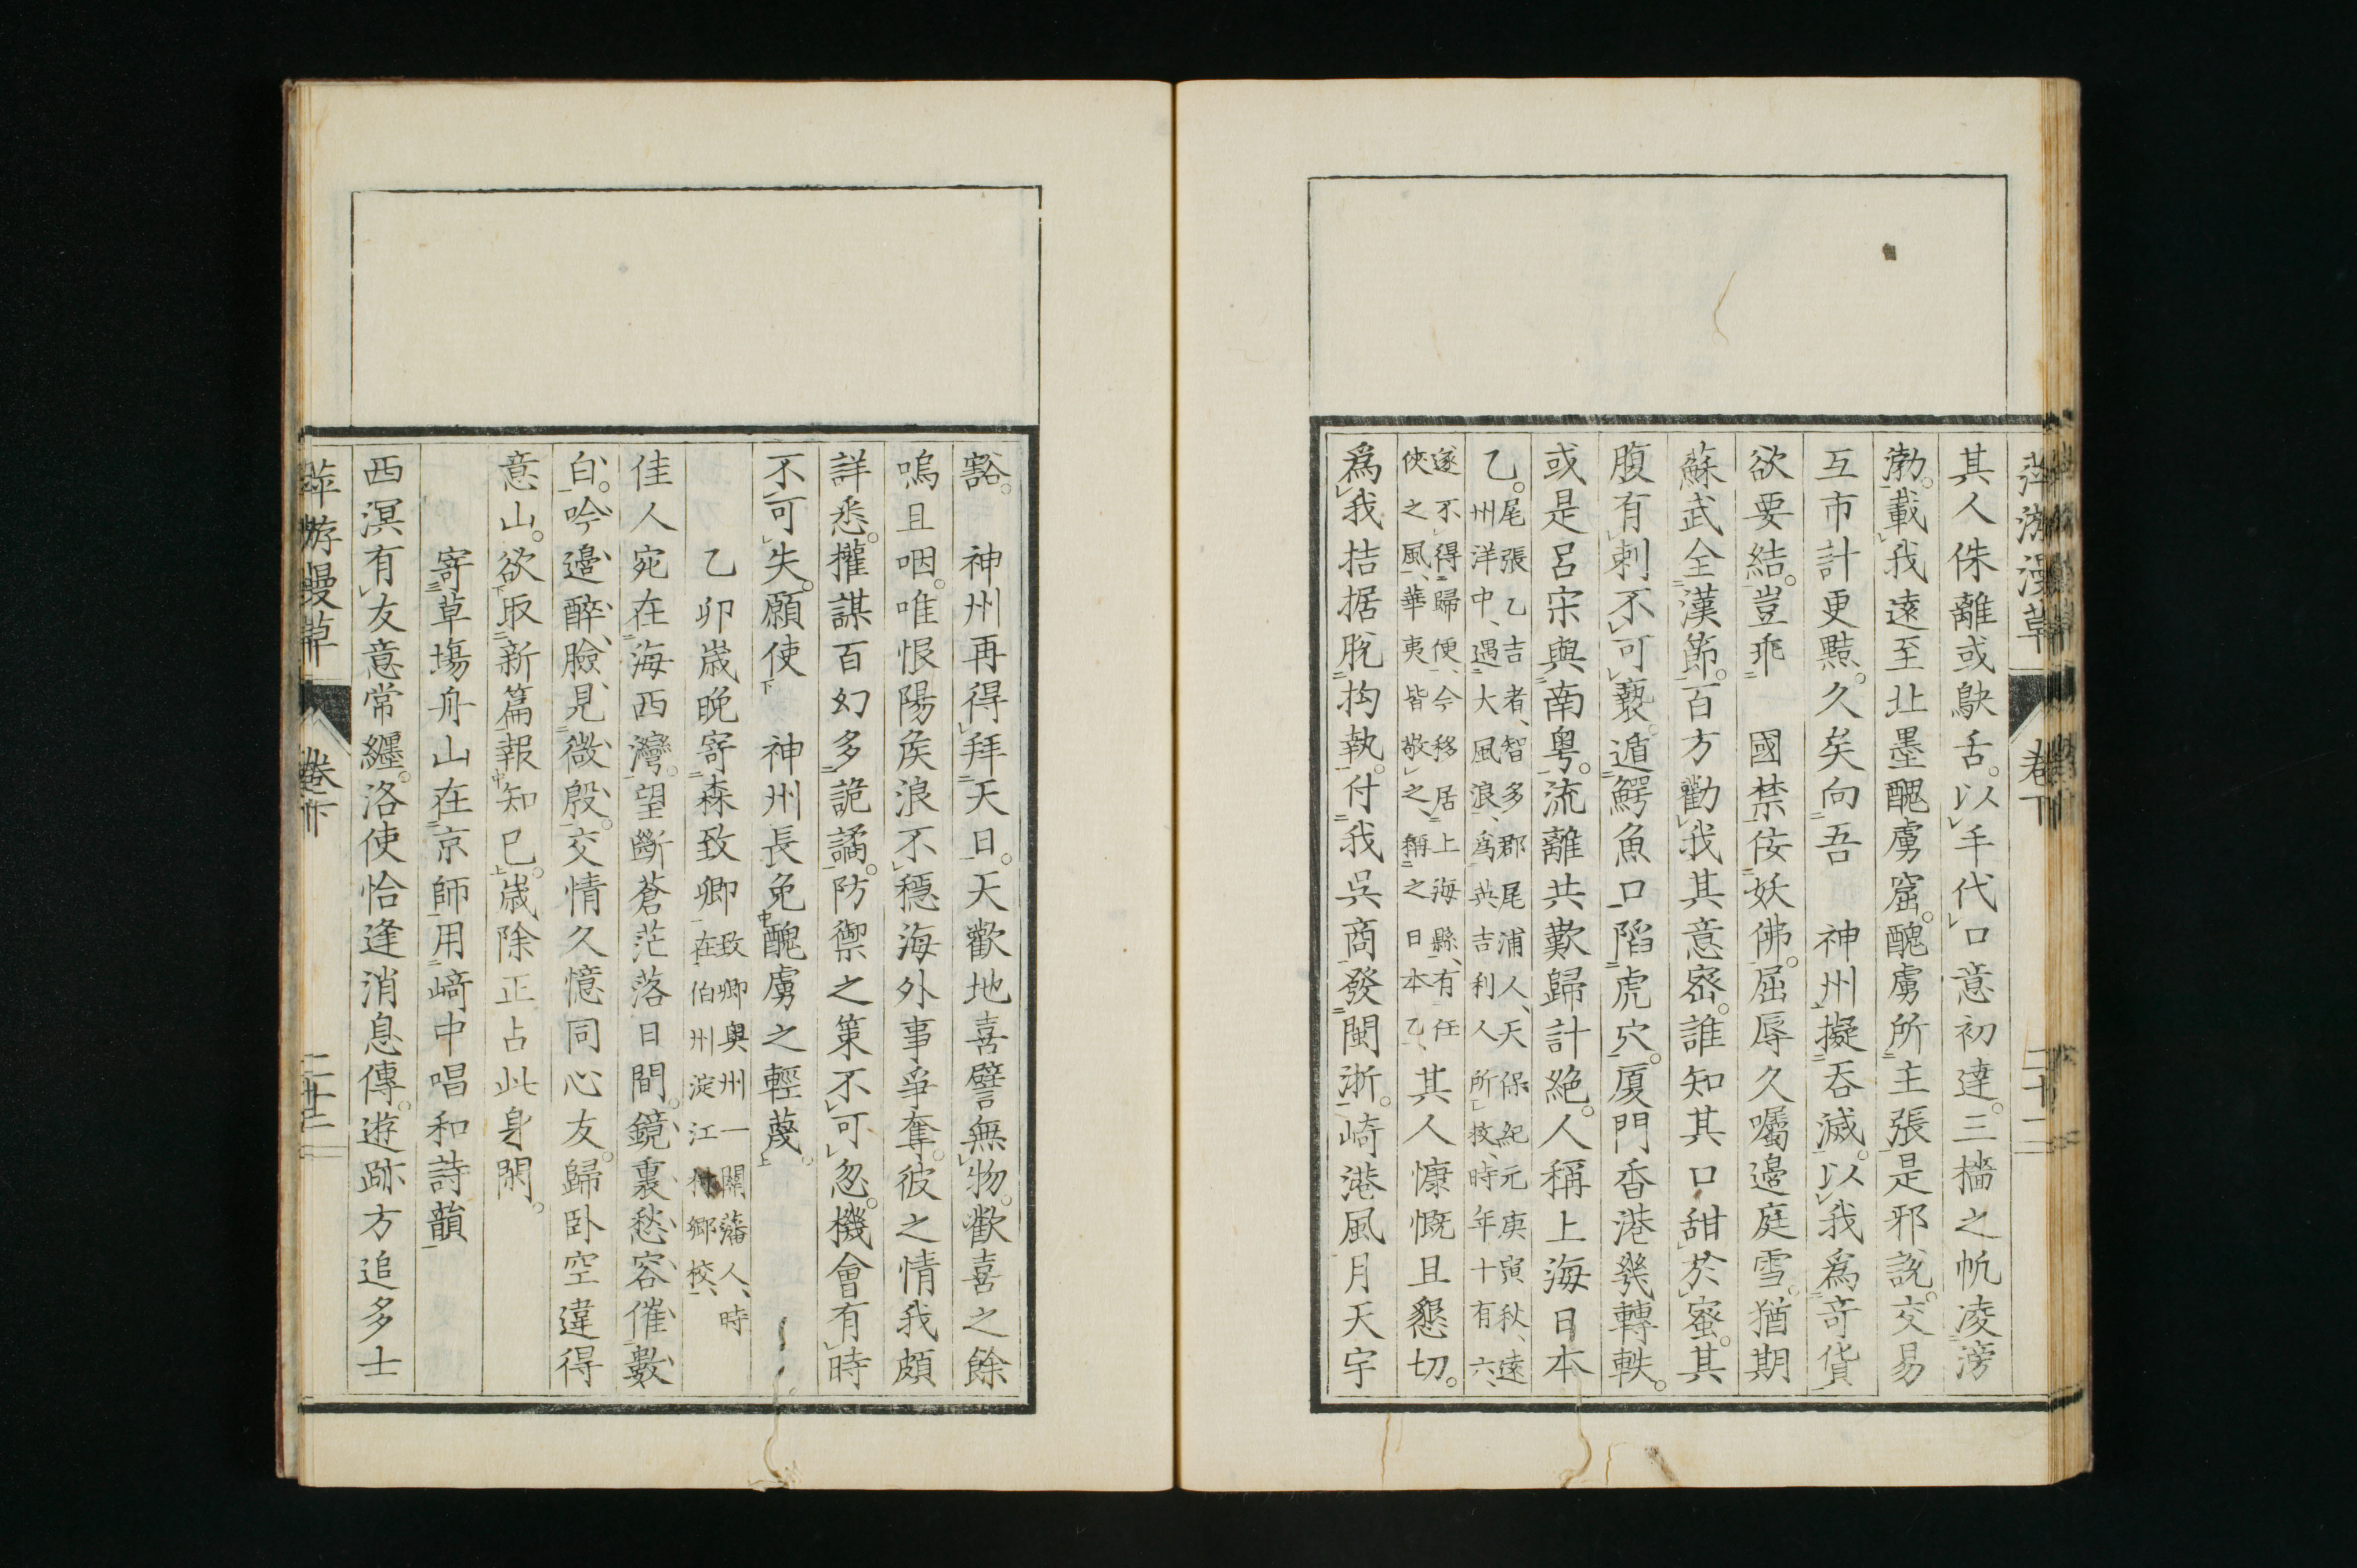 萍游漫草 卷下 二十二
其人侏離或鴃舌。以手代口意初達。三檣之帆凌滂
渤。載我遠至北墨醜虜窟。醜虜所主張是邪說。交易
互市計更黠。久矣向吾 神州擬呑滅。以我爲奇貨
欲要結。豈乖 國禁佞妖佛。屈辱久囑邊庭雪。猶期
蘇武全漢節。百方勸我其意密。誰知其口甜於蜜。其
腹有刺不可褻。遁鰐魚口陷虎穴。厦門香港幾轉軼。
或是呂宋與南粤。流離共歎歸計絕。人稱上海日本
乙。尾張乙吉者、智多郡尾浦人、天保紀元庚寅秋、遠
州洋中、遇大風浪、爲英吉利人所救、時年十有六、
遂不得歸便、今移居上海縣、有任
俠之風、華夷皆敬之、稱之日本乙、其人慷慨且懇切。
爲我拮据脫拘執。付我吳商發閩浙。崎港風月天宇
豁。 神州再得拜天日。天歡地喜譬無物。歡喜之餘
嗚且咽。唯恨陽矦浪不穩海外事爭奪。彼之情我頗
詳悉。攉謀百幻多詭譎。防禦之策不可忽。機會有時
不可失。願使 神州長免醜虜之輕蔑。
乙卯歲晚寄森致卿 致卿奧州一關藩人、時
在伯州淀江村鄉校、
佳人宛在海西灣。望斷蒼茫落日間。鏡裏愁容催數
白。吟邊醉臉見微殷。交情久憶同心友。歸臥空違得
意山。欲取新篇報知已。歲除正占此身閑。
寄草塲舟山在京師用﨑中唱和詩韻
西溟有友意常纒。洛使恰逢消息傳。遊跡方追多士
萍游漫草 卷下